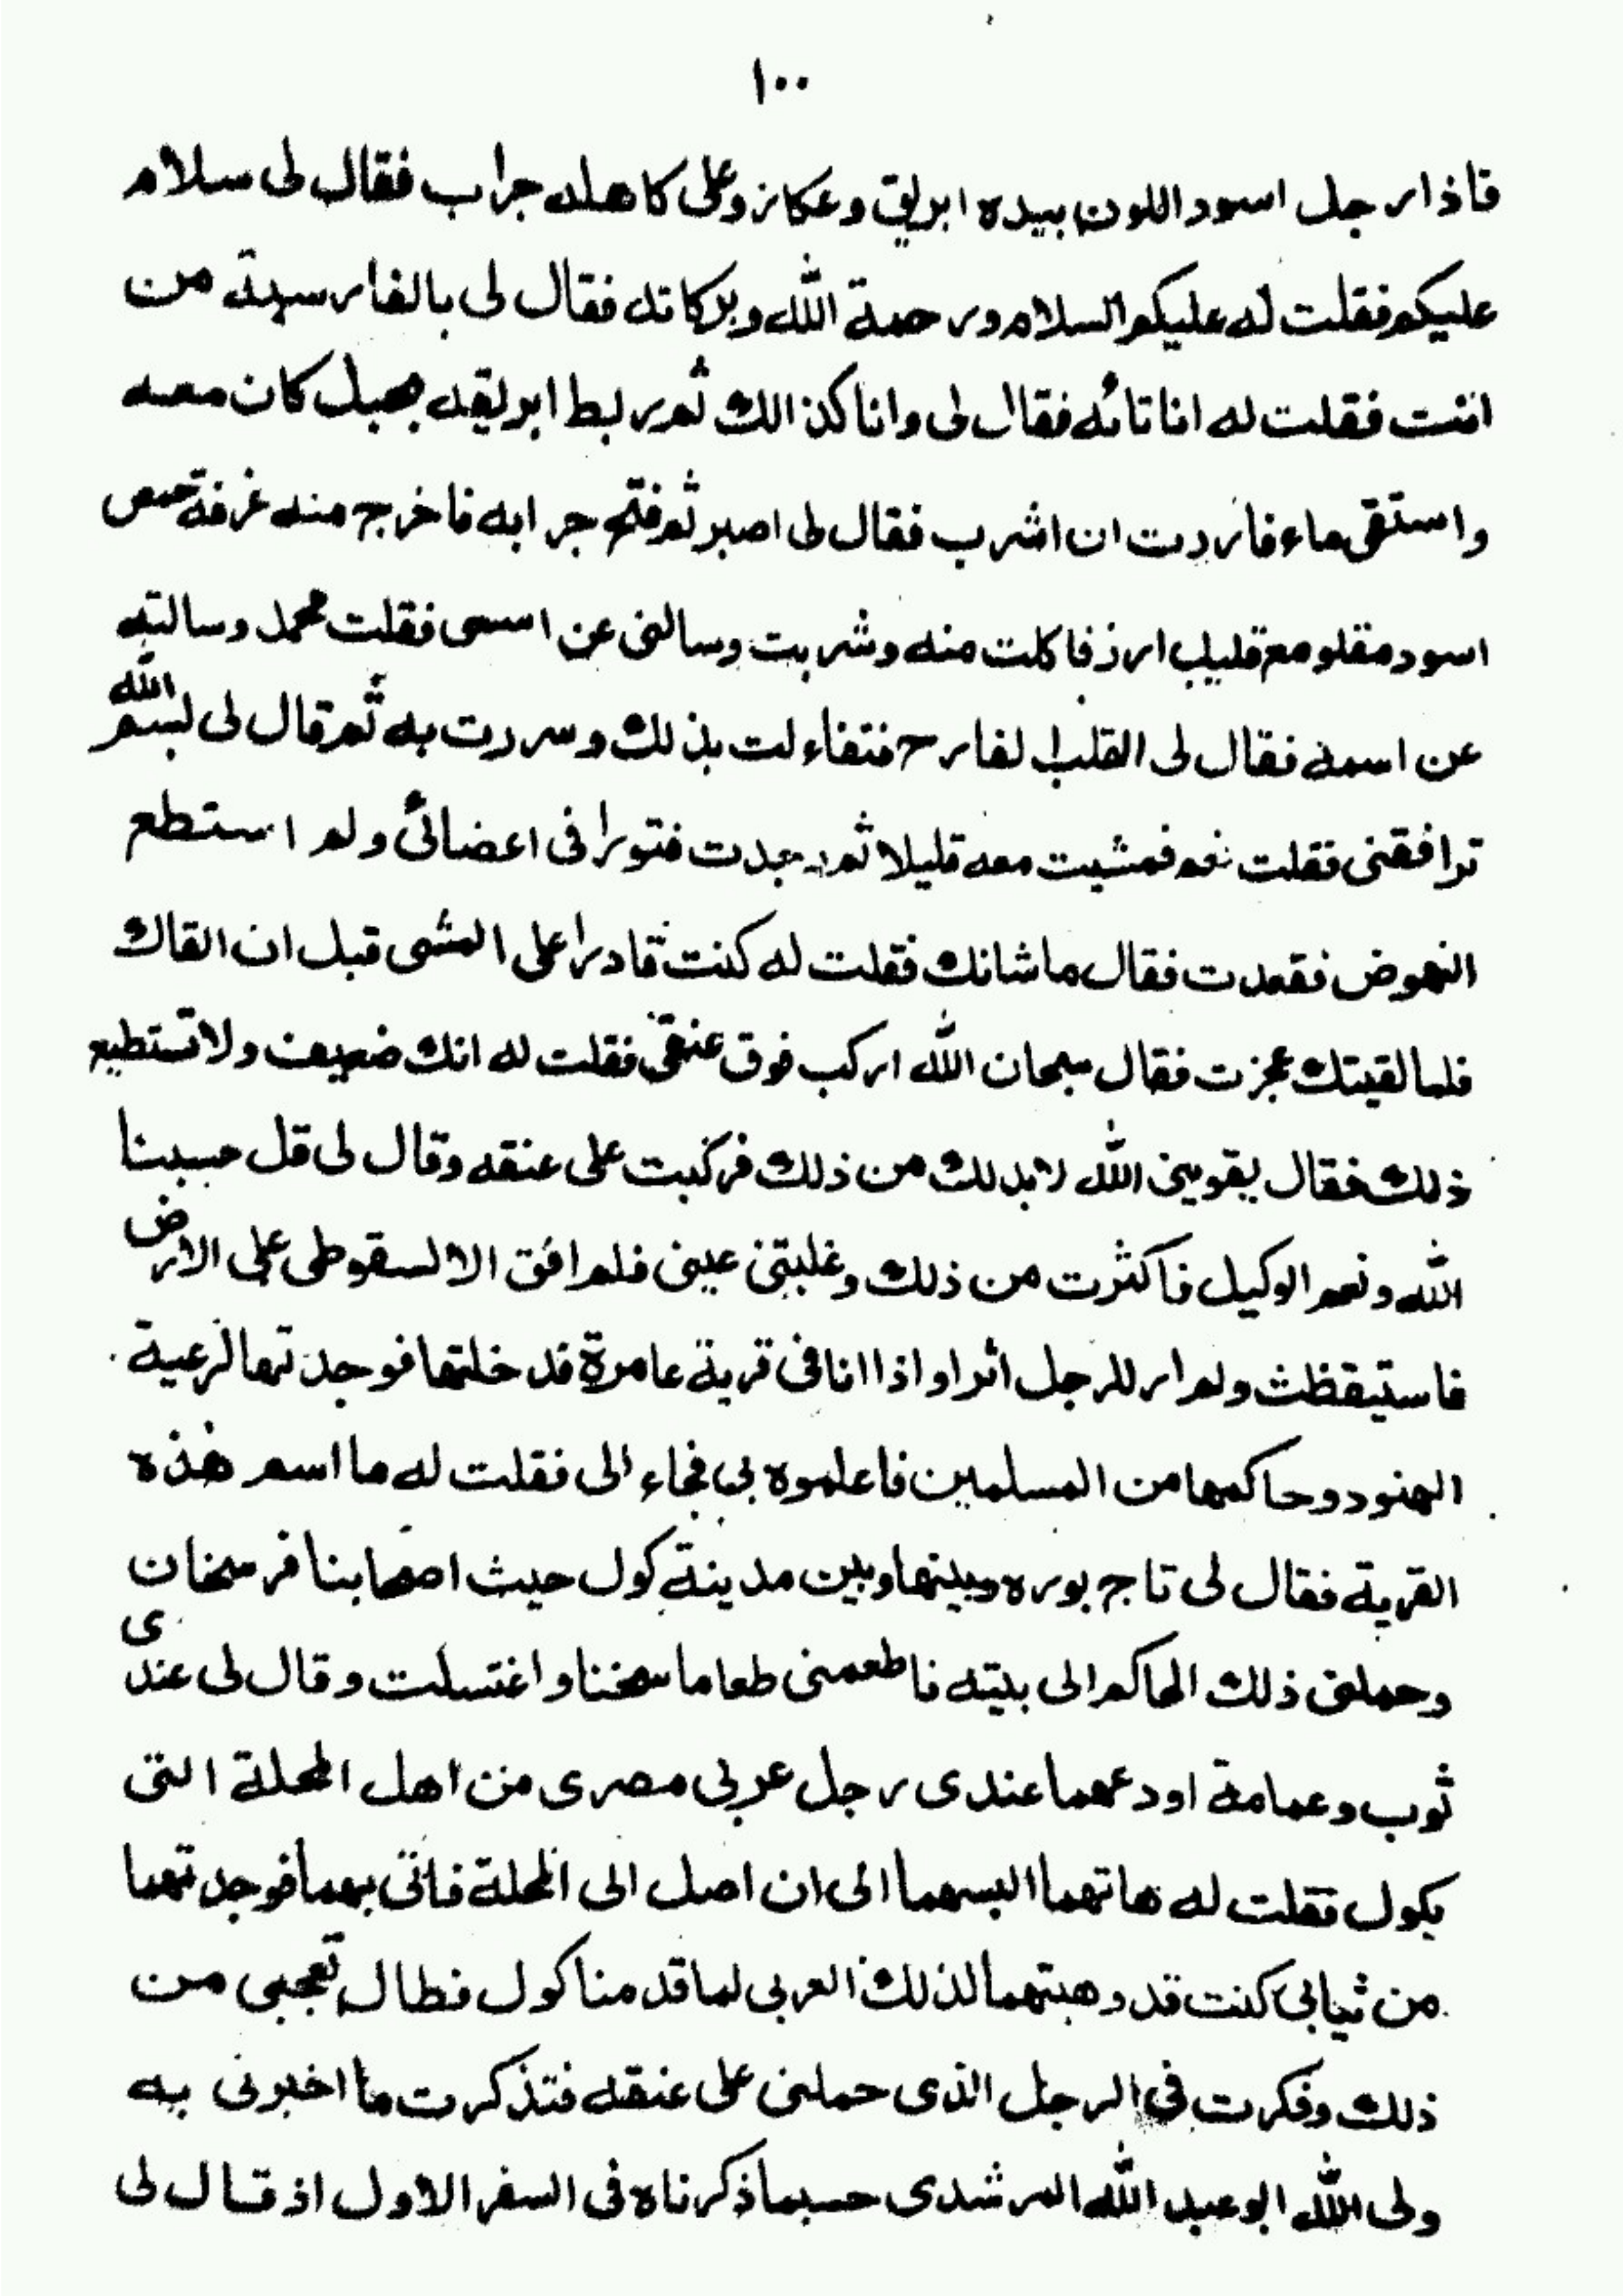 ١٠٠
فاذا رجل اسود اللون بيده ابريق وعكاز وعلى كاهله جراب فقال لى سلام
عليكم فقلت له عليكم السلام ورحمة الله وبركاته فقال لى بالفارسية من
انت فقلت له انا تائه فقال لى وانا كذالك ثم ربط ابريقه بحبل كان معه
واستقى ماء فاردت ان اشرب فقال لى اصبر ثم فتح جرابه فاخرج منه غرفة حمص
اسود مقلو مع قليل ارز فاكلت منه وشربت وسالنى عن اسمى فقلت محمد وسالته
عن اسمه فقال لى القلب الفارح فتفاءلت بذلك وسررت به ثم قال لى بسم الله
ترافقنى فقلت نعم فمشيت معه قليلا ثم وجدت فتورا فى اعضائى ولم استطع
النهوض فقعدت فقال ما شانك فقلت له كنت قادرا على المشى قبل ان القاك
فلما لقيتك عجزت فقال سبحان الله اركب فوق عنقى فقلت له انك ضعيف ولا تستطيع
ذلك فقال يقوينى الله لا بد لك من ذلك فركبت على عنقه وقال لى قل حسبنا
الله ونعم الوكيل فاكثرت من ذلك وغلبتنى عينى فلم افق الا لسقوطى على الارض
فاستيقظت ولم ار للرجل اثرا واذا انا فى قرية عامرة فدخلتها فوجدتها لرعية
الهنود وحاكمها من المسلمين فاعلموه بى فجاء الى فقلت له ما اسم هذه
القرية فقال لى تاج بوره وبينها وبين مدينة كول حيث اصحابنا فرسخان
وحملنى ذلك الحاكم الى بيته فاطعمنى طعاما سخنا واغتسلت وقال لى عندى
ثوب وعمامة اودعهما عندى رجل عربى مصرى من اهل المحلة التى
بكول فقلت له هاتهما البسهما الى ان اصل الى المحلة فاتى بهما فوجدتهما
من ثيابى كنت قد وهبتهما لذلك العربى لما قدمنا كول فطال تعجبى من
ذلك وفكرت فى الرجل الذى حملنى على عنقه فتذكرت ما اخبرنى به
ولى الله ابو عبد الله المرشدى حسبما ذكرناه فى السفر الاول اذ قال لى